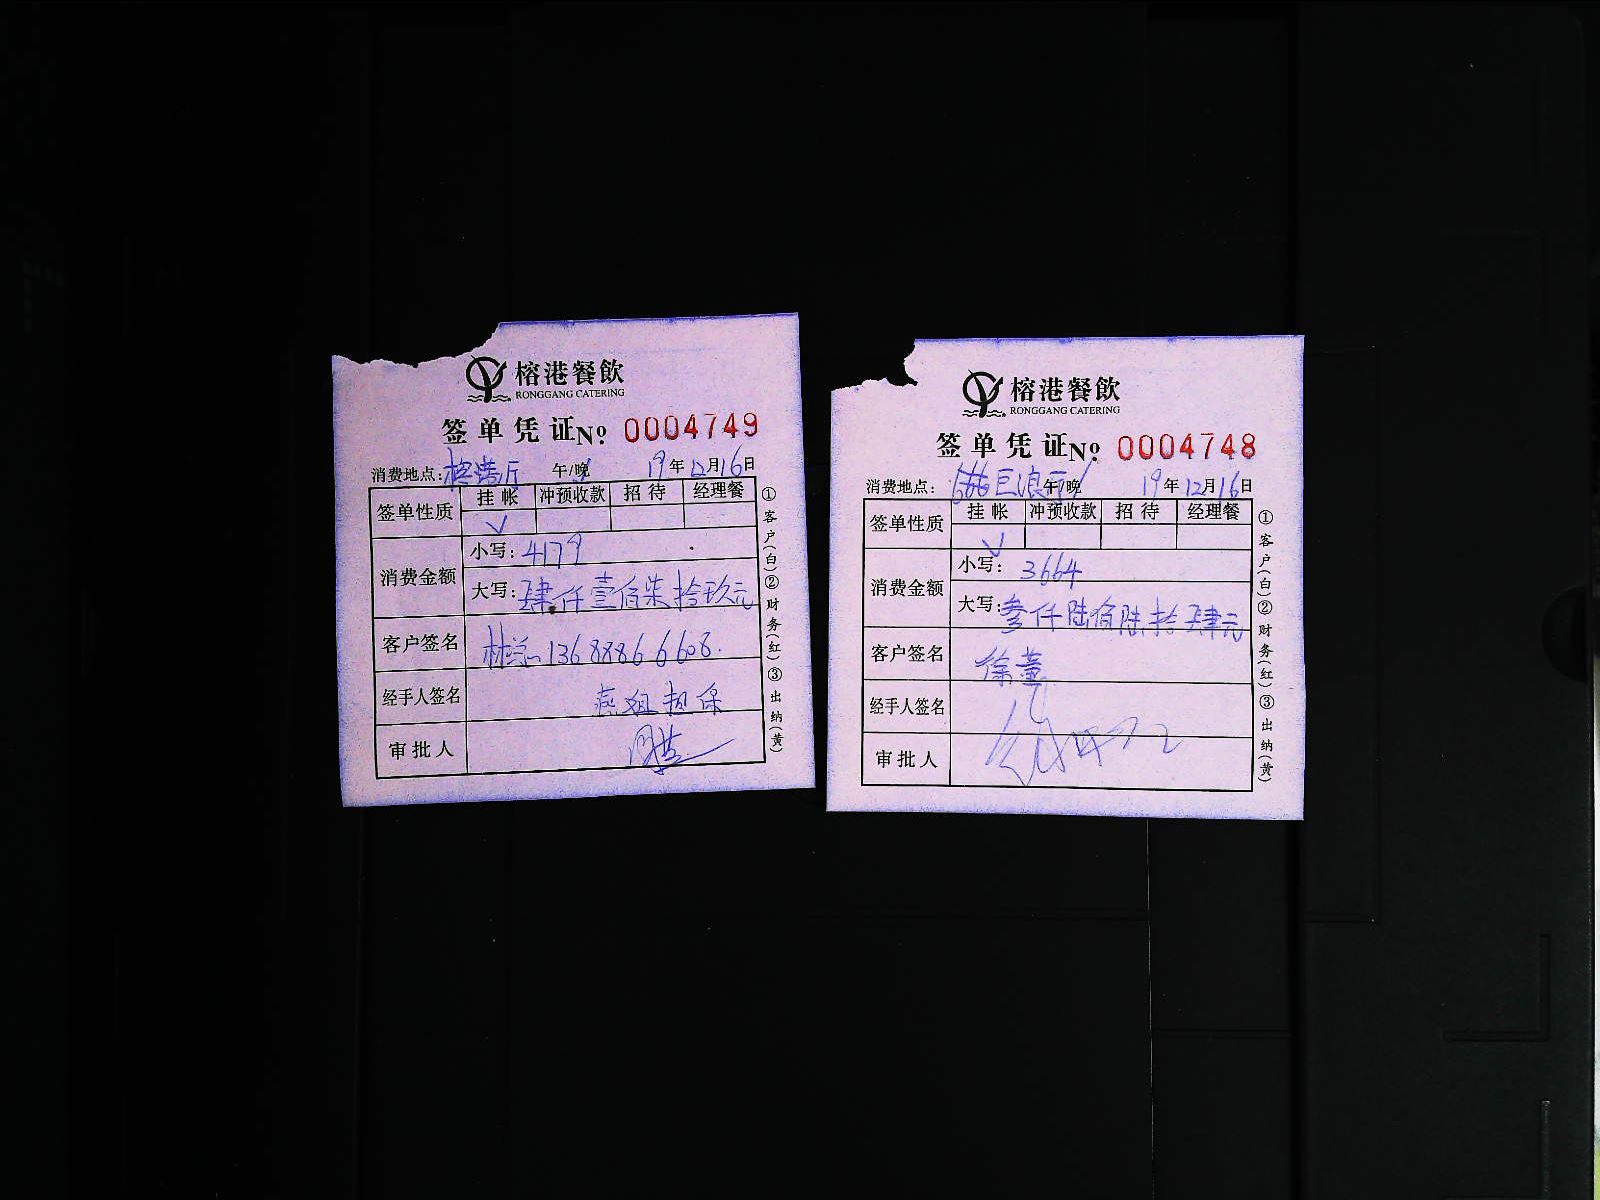 榕港餐飲
RONGGANG CATERING
签单凭证№ 0004749
消费地点：榕港厅 午/晚 19年12月16日
签单性质 挂帐 冲预收款 招待 经理餐
√
消费金额 小写：4179
大写：肆仟壹佰柒拾玖元
客户签名 林总 13688866608.
经手人签名 燕姐担保
审批人
①客户（白）②财务（红）③出纳（黄）
榕港餐飲
RONGGANG CATERING
签单凭证№ 0004748
消费地点： 巨浪厅 午/晚 19年12月16日
签单性质 挂帐 冲预收款 招待 经理餐
√
消费金额 小写：3664
大写：叁仟陆佰陆拾肆元
客户签名 徐董
经手人签名
审批人
①客户（白）②财务（红）③出纳（黄）